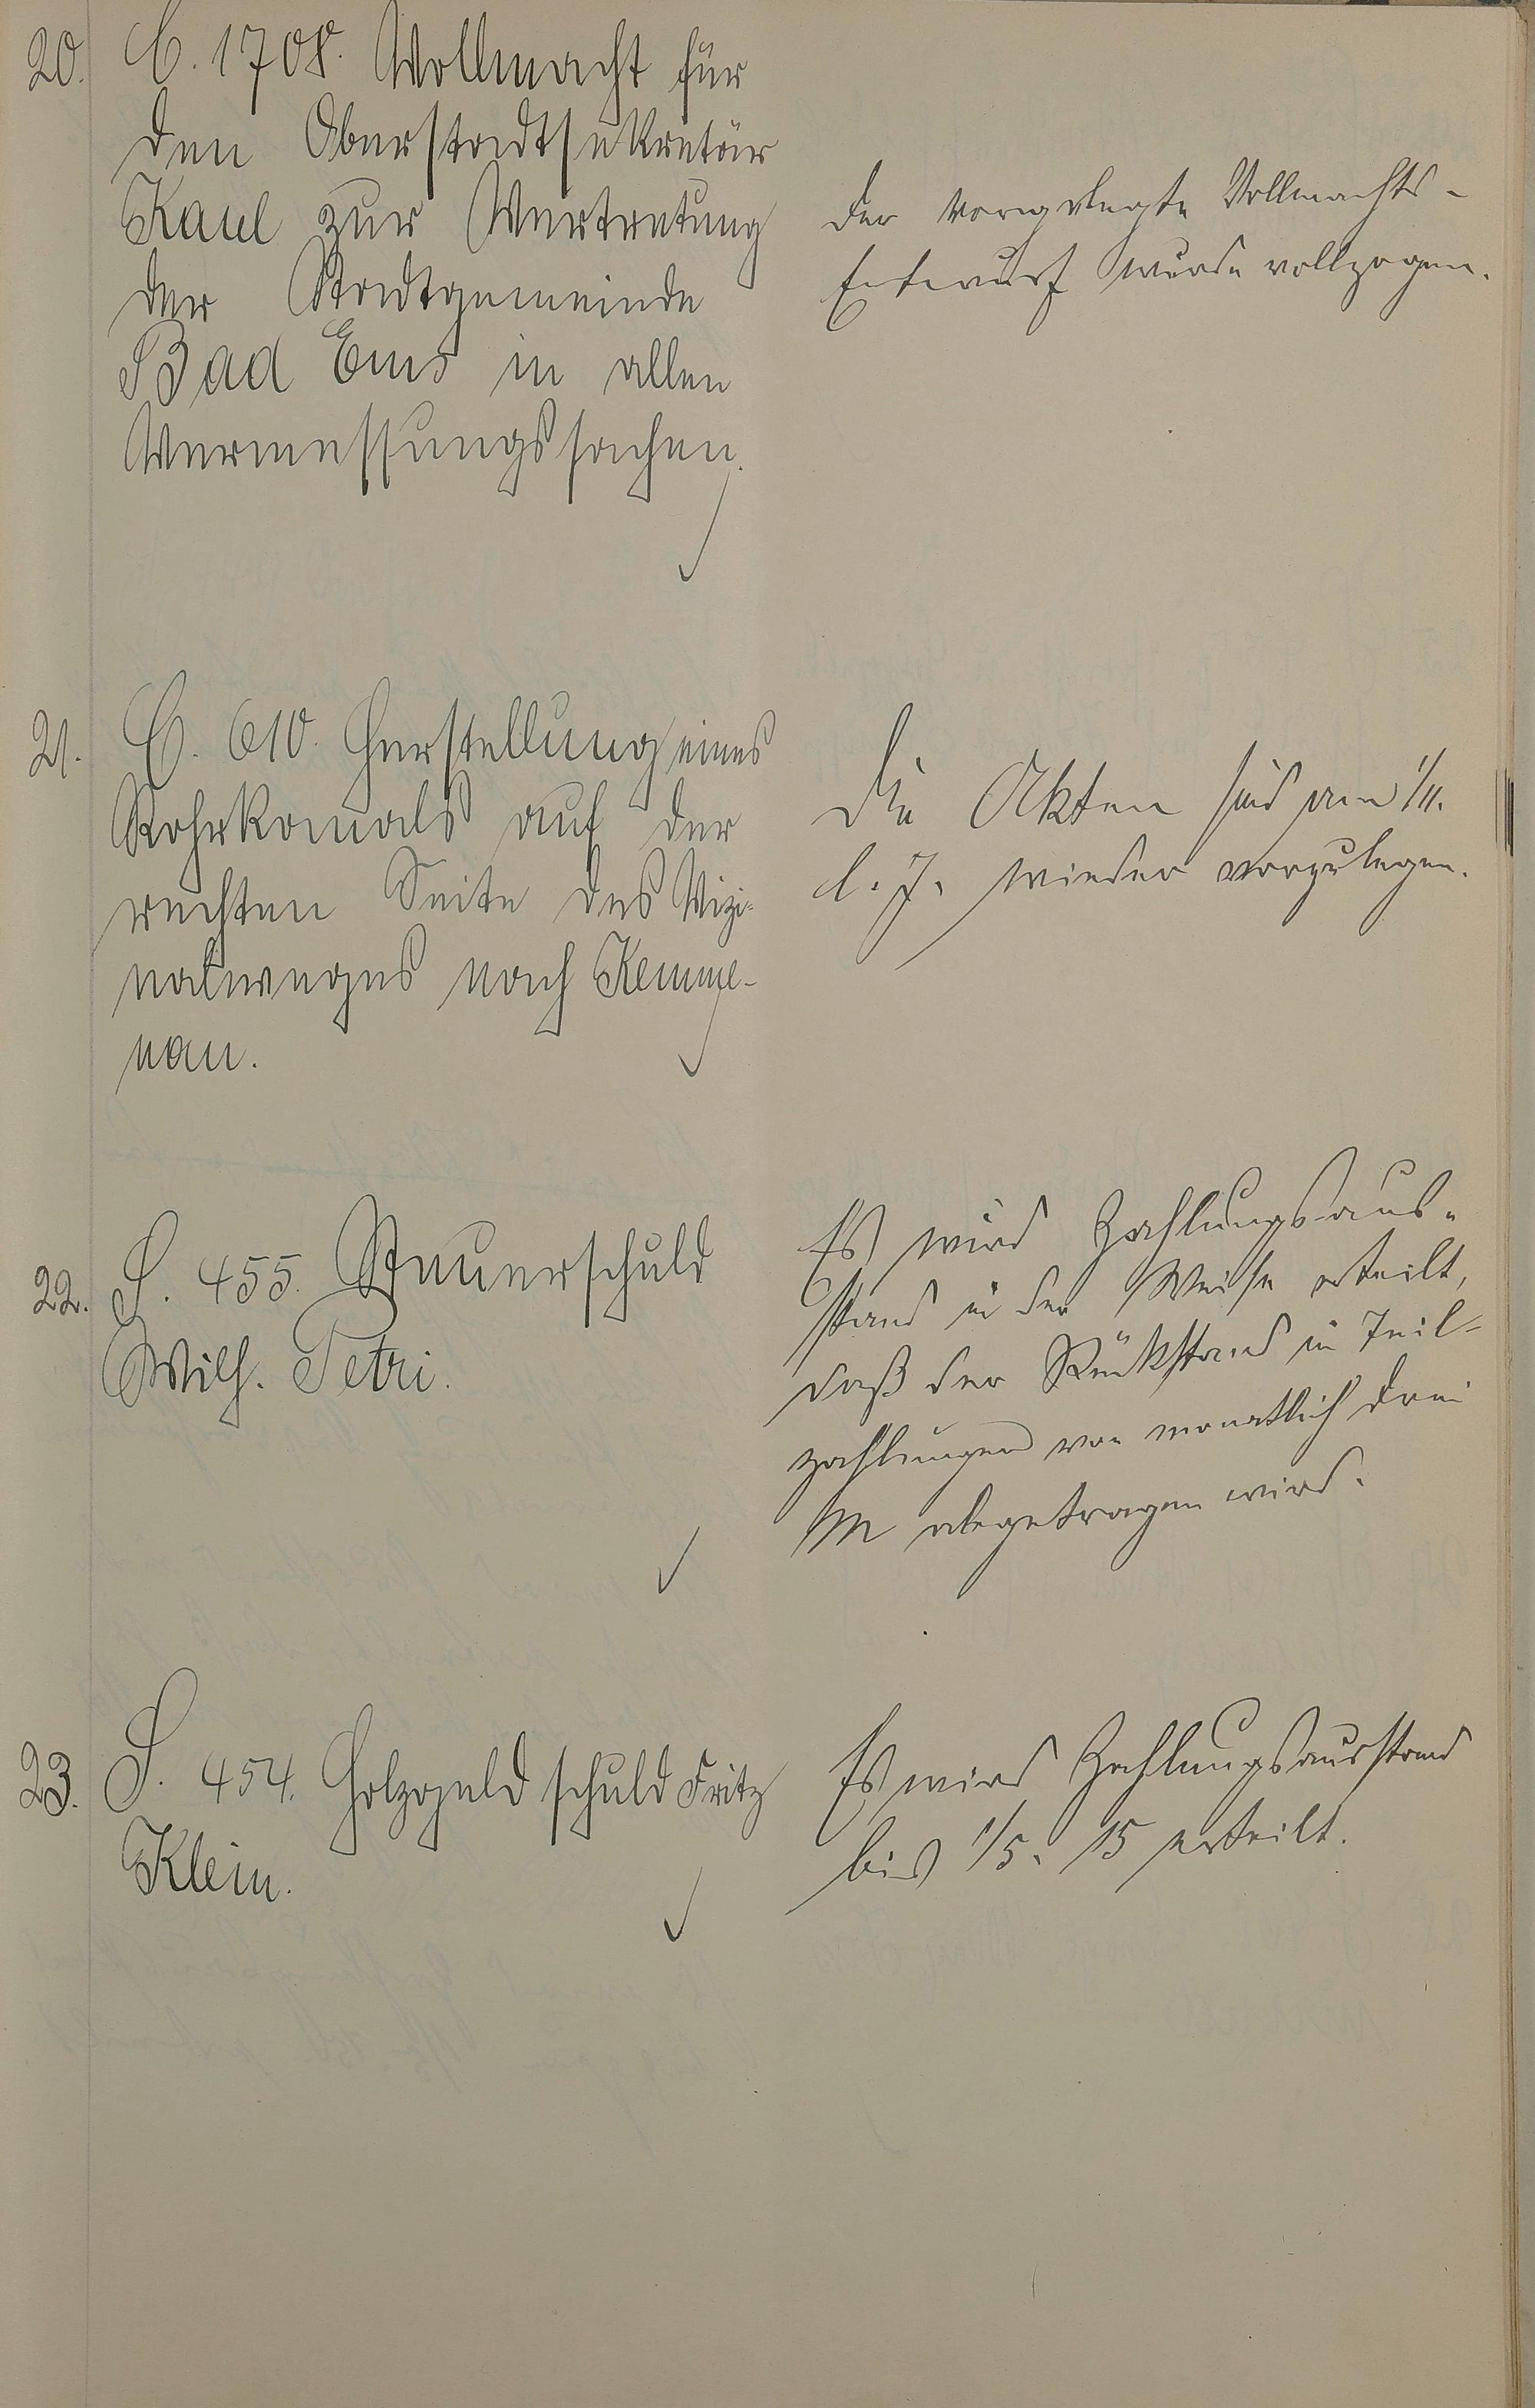 20. C. 1708. Vollmacht für
den Oberstadtsekretär
Kaul zur Vertretung
der Stadtgemeinde
Bad Ems in allen
Vermessungssachen.
Der vorgelegte Vollmachts-
Entwurf wurde vollzogen.
21. C. 610. Herstellung eines
Rohrkanals auf der
rechten Seite des Vizi-
nalweges nach Kemme-
nau.
Die Akten sind am 1/11.
l. J. wieder vorzulegen.
22. S. 455. Steuerschuld
Wilh. Petri.
Es wird Zahlungsaus-
stand in der Weise erteilt,
daß der Rückstand in Teil-
zahlungen von monatlich drei
M abgetragen wird.
23. S. 454. Holzgeldschuld Fritz
Klein.
Es wird Zahlungsausstand
bis 1/5. 15 erteilt.